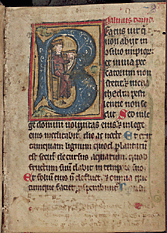 eatus uir q
non abiit in
impior
et in uia pec
catorum non
stetit et in ca
thedra pesti
lencie non se
dit. Sed in le
ge domini uoluntas eius et in lege
eius meditabitur die ac nocte. Et erit
tamquam lignum quod plantatum
est secus decursus aquarum quod
fructum suum dabit in tempore suo
Et folium eius non defluet et omnia que
cumque faciet prosperabuntur